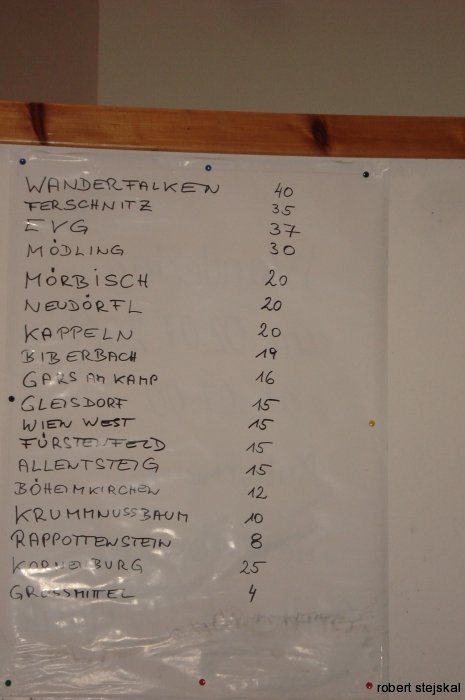 WANDERFALKEN 40
FERSCHNITZ 35
EVG 37
MÖDLING 30
MÖRBISCH 20
NEUDÖRFL 20
KAPPELN 20
BIBERBACH 19
GARS AM KAMP 16
GLEISDORF 15
WIEN WEST 15
FÜRSTENFELD 15
ALLENTSTEIG 15
BÖHEIMKIRCHEN 12
KRUMMNUSSBAUM 10
RAPPOTTENSTEIN 8
KORNEUBURG 25
GROSSMITTEL 4
robert stejskal